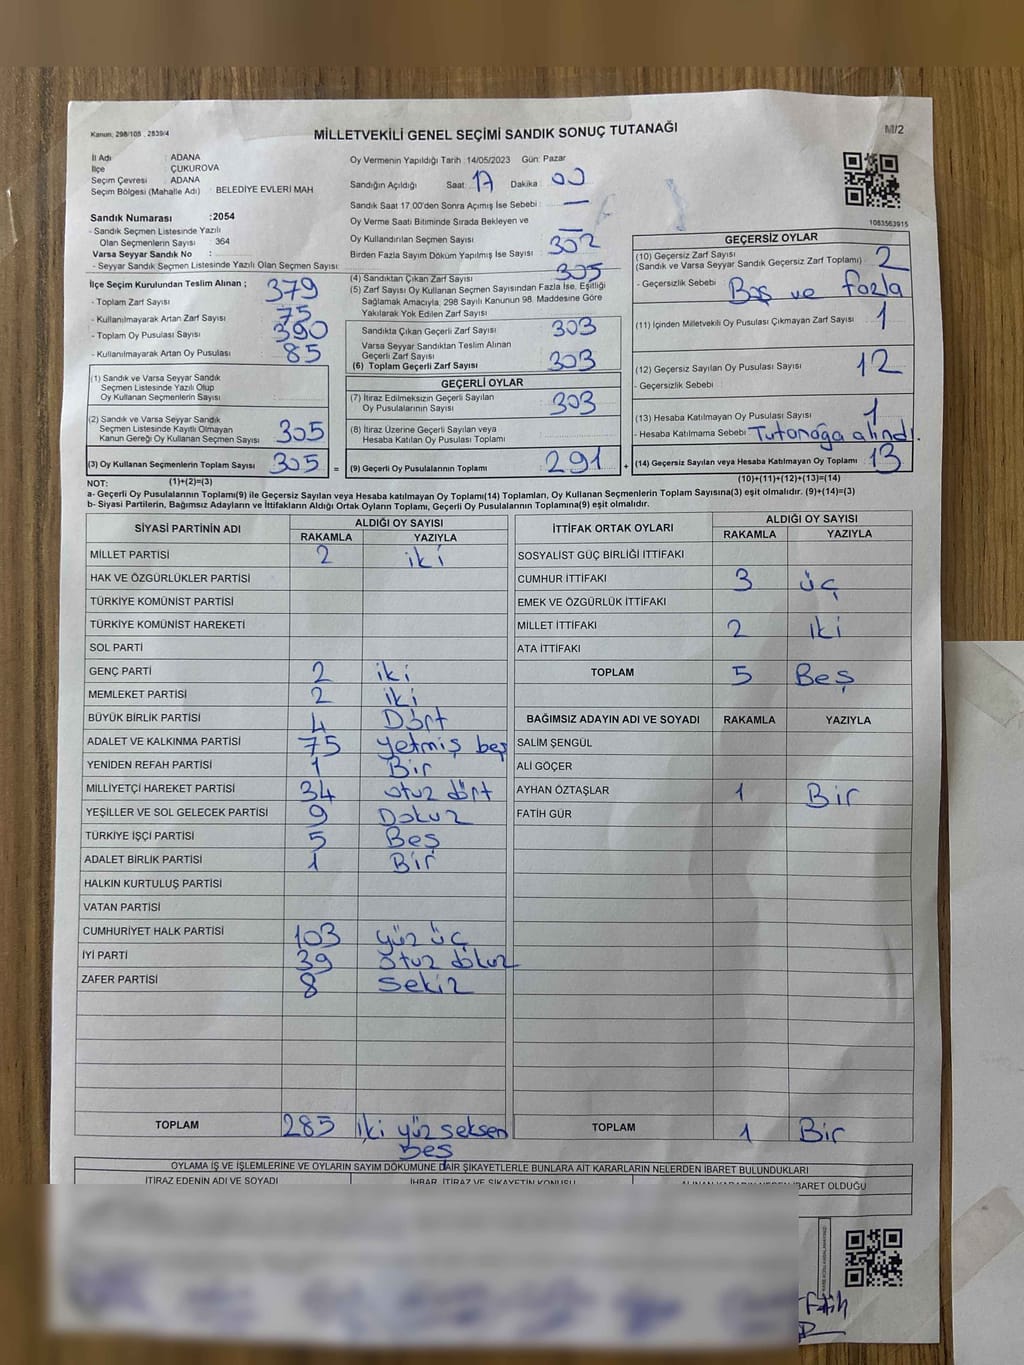 Kanun: 298/105 , 2839/4
MİLLETVEKİLİ GENEL SEÇİMİ SANDIK SONUÇ TUTANAĞI
M/2
İl Adı : ADANA
İlçe : ÇUKUROVA
Seçim Çevresi : ADANA
Seçim Bölgesi (Mahalle Adı) : BELEDİYE EVLERİ MAH
Sandık Numarası :2054
- Sandık Seçmen Listesinde Yazılı
Olan Seçmenlerin Sayısı : 364
Varsa Seyyar Sandık No :
- Seyyar Sandık Seçmen Listesinde Yazılı Olan Seçmen Sayısı:
Oy Vermenin Yapıldığı Tarih :14/05/2023 Gün: Pazar
Sandığın Açıldığı Saat: 17 Dakika : 00
Sandık Saat 17.00'den Sonra Açımış İse Sebebi : —
Oy Verme Saati Bitiminde Sırada Bekleyen ve
Oy Kullandırılan Seçmen Sayısı : —
Birden Fazla Sayım Döküm Yapılmış İse Sayısı : 302
1083563915
İlçe Seçim Kurulundan Teslim Alınan ;
- Toplam Zarf Sayısı : 379
- Kullanılmayarak Artan Zarf Sayısı : 75
- Toplam Oy Pusulası Sayısı : 390
- Kullanılmayarak Artan Oy Pusulası : 85
(1) Sandık ve Varsa Seyyar Sandık
Seçmen Listesinde Yazılı Olup
Oy Kullanan Seçmenlerin Sayısı :
(2) Sandık ve Varsa Seyyar Sandık
Seçmen Listesinde Kayıtlı Olmayan
Kanun Gereği Oy Kullanan Seçmen Sayısı : 305
(3) Oy Kullanan Seçmenlerin Toplam Sayısı : 305 =
(1)+(2)=(3)
(4) Sandıktan Çıkan Zarf Sayısı : 305
(5) Zarf Sayısı Oy Kullanan Seçmen Sayısından Fazla İse, Eşitliği
Sağlamak Amacıyla, 298 Sayılı Kanunun 98. Maddesine Göre
Yakılarak Yok Edilen Zarf Sayısı :
Sandıkta Çıkan Geçerli Zarf Sayısı : 303
Varsa Seyyar Sandıktan Teslim Alınan
Geçerli Zarf Sayısı :
(6) Toplam Geçerli Zarf Sayısı : 303
GEÇERLİ OYLAR
(7) İtiraz Edilmeksizin Geçerli Sayılan
Oy Pusulalarının Sayısı : 303
(8) İtiraz Üzerine Geçerli Sayılan veya
Hesaba Katılan Oy Pusulası Toplamı :
(9) Geçerli Oy Pusulalarının Toplamı : 291 +
GEÇERSİZ OYLAR
(10) Geçersiz Zarf Sayısı
(Sandık ve Varsa Seyyar Sandık Geçersiz Zarf Toplamı) : 2
- Geçersizlik Sebebi : Boş ve fazla
(11) İçinden Milletvekili Oy Pusulası Çıkmayan Zarf Sayısı : 1
(12) Geçersiz Sayılan Oy Pusulası Sayısı : 12
- Geçersizlik Sebebi :
(13) Hesaba Katılmayan Oy Pusulası Sayısı : 1
- Hesaba Katılmama Sebebi : Tutanağa alındı.
(14) Geçersiz Sayılan veya Hesaba Katılmayan Oy Toplamı : 13
(10)+(11)+(12)+(13)=(14)
NOT:
a- Geçerli Oy Pusulalarının Toplamı(9) ile Geçersiz Sayılan veya Hesaba katılmayan Oy Toplamı(14) Toplamları, Oy Kullanan Seçmenlerin Toplam Sayısına(3) eşit olmalıdır. (9)+(14)=(3)
b- Siyasi Partilerin, Bağımsız Adayların ve İttifakların Aldığı Ortak Oyların Toplamı, Geçerli Oy Pusulalarının Toplamına(9) eşit olmalıdır.
SİYASİ PARTİNİN ADI ALDIĞI OY SAYISI
RAKAMLA YAZIYLA
MİLLET PARTİSİ 2 iki
HAK VE ÖZGÜRLÜKLER PARTİSİ
TÜRKİYE KOMÜNİST PARTİSİ
TÜRKİYE KOMÜNİST HAREKETİ
SOL PARTİ
GENÇ PARTİ 2 iki
MEMLEKET PARTİSİ 2 iki
BÜYÜK BİRLİK PARTİSİ 4 Dört
ADALET VE KALKINMA PARTİSİ 75 yetmiş beş
YENİDEN REFAH PARTİSİ 1 Bir
MİLLİYETÇİ HAREKET PARTİSİ 34 otuz dört
YEŞİLLER VE SOL GELECEK PARTİSİ 9 Dokuz
TÜRKİYE İŞÇİ PARTİSİ 5 Beş
ADALET BİRLİK PARTİSİ 1 Bir
HALKIN KURTULUŞ PARTİSİ
VATAN PARTİSİ
CUMHURİYET HALK PARTİSİ 103 yüz üç
İYİ PARTİ 39 otuz dokuz
ZAFER PARTİSİ 8 sekiz
TOPLAM 285 iki yüz seksen
beş
İTTİFAK ORTAK OYLARI ALDIĞI OY SAYISI
RAKAMLA YAZIYLA
SOSYALİST GÜÇ BİRLİĞİ İTTİFAKI
CUMHUR İTTİFAKI 3 üç
EMEK VE ÖZGÜRLÜK İTTİFAKI
MİLLET İTTİFAKI 2 iki
ATA İTTİFAKI
TOPLAM 5 Beş
BAĞIMSIZ ADAYIN ADI VE SOYADI RAKAMLA YAZIYLA
SALİM ŞENGÜL
ALİ GÖÇER
AYHAN ÖZTAŞLAR 1 Bir
FATİH GÜR
TOPLAM 1 Bir
OYLAMA İŞ VE İŞLEMLERİNE VE OYLARIN SAYIM DÖKÜMÜNE DAİR ŞİKAYETLERLE BUNLARA AİT KARARLARIN NELERDEN İBARET BULUNDUKLARI
İTİRAZ EDENİN ADI VE SOYADI İHBAR, İTİRAZ VE ŞİKAYETİN KONUSU ALINAN KARARIN NEDEN İBARET OLDUĞU
Fatih